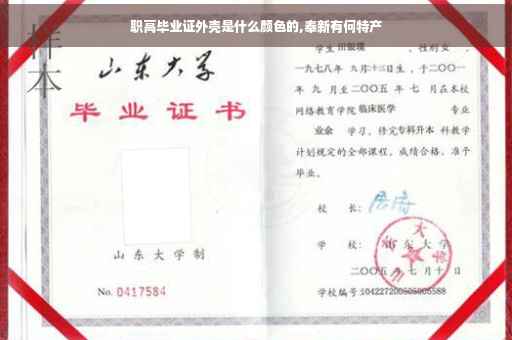 职高毕业证外壳是什么颜色的,奉新有何特产
样本
山东大学
毕业证书
山东大学制
No. 0417584
学生 田银瑞 ,性别女 ,
一九七八年 九月十三日生,于二〇〇一
年 九 月至二〇〇五 年 七 月在本校
网络教育学院 临床医学 专业
业余 学习,修完专科升本 科教学
计划规定的全部课程,成绩合格,准予
毕业。
校 长:
学 校: 山东大学
二〇〇五 年 七 月 十 日
学校编号: